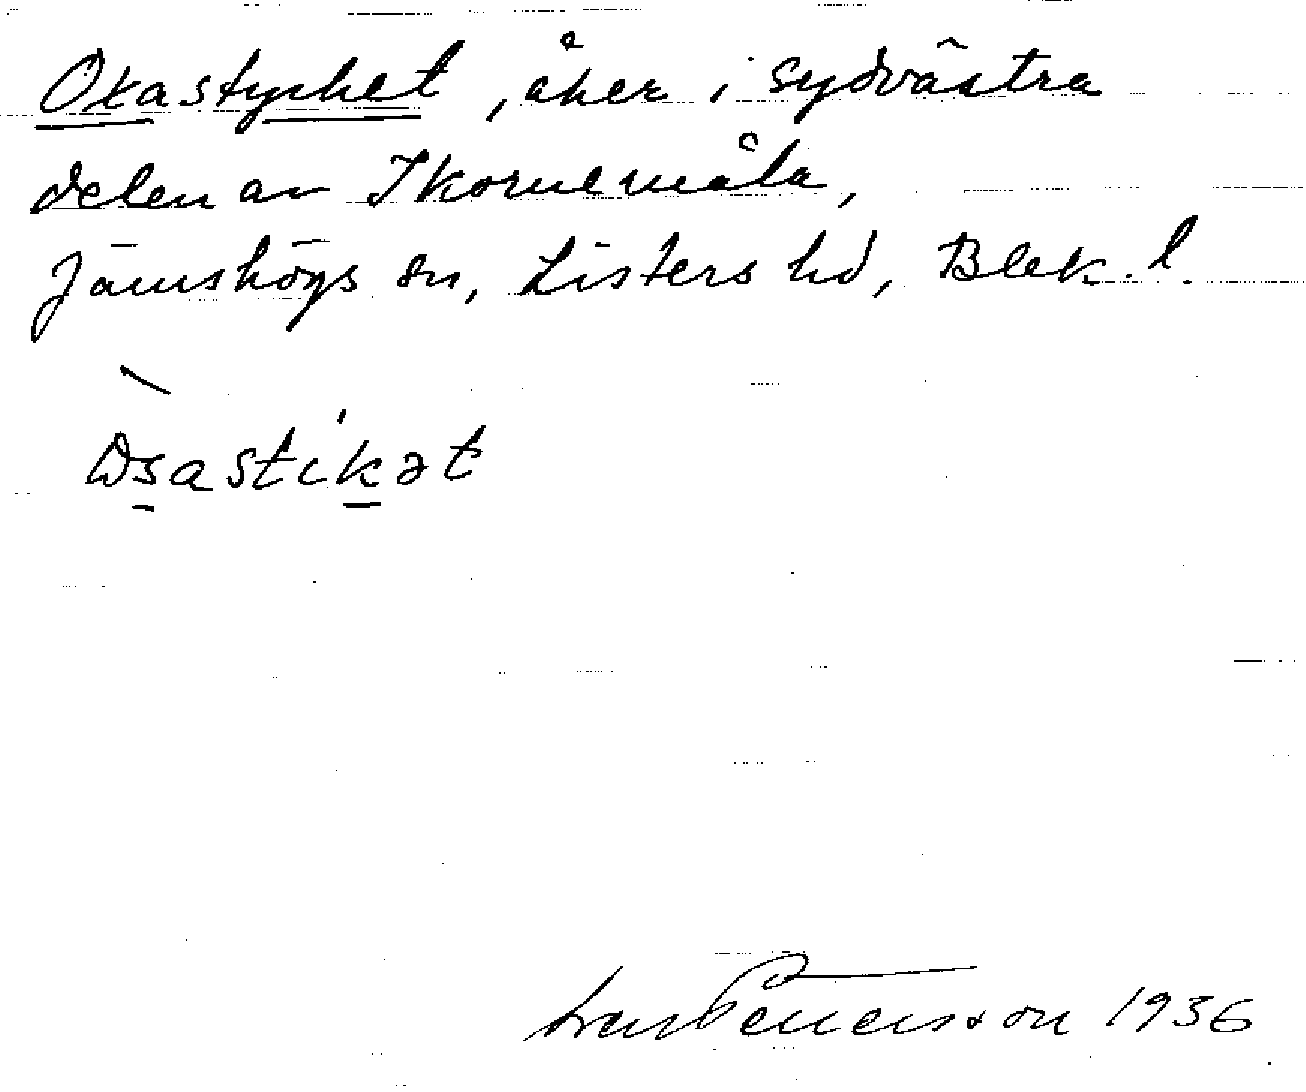 Oxastycket, åker i sydvästra
delen av Ikornemåla,
Jämshögs sn, Listers hd, Blek. l.
1936